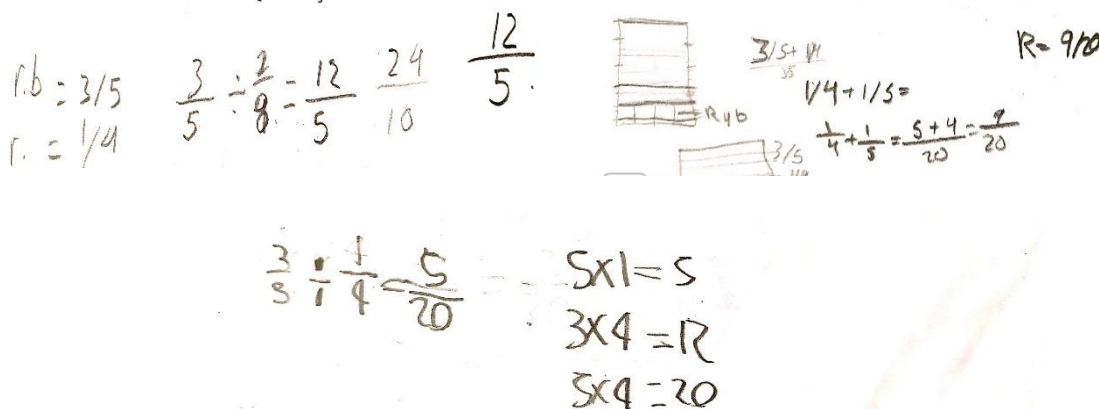 r.b = 3/5
r. = 1/4
3/5 ÷ 2/8 = 12/5
24/10
12/5.
R y b
1/4 + 1/5 =
1/4 + 1/5 = 5+4/20 = 9/20
R = 9/20
3/5
3/5 ÷ 1/4 = 5/20
5x1=5
3x4=12
5x4=20